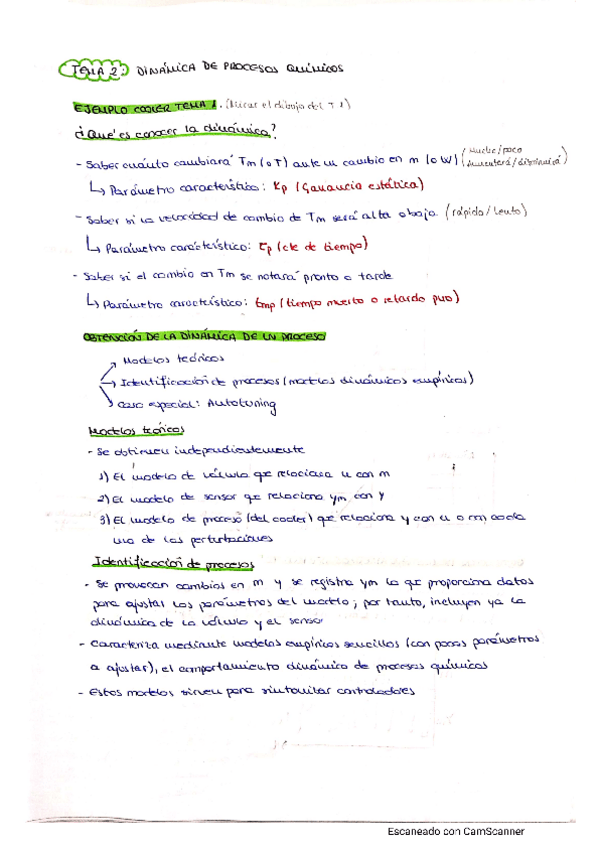 TEMA 2: DINÁMICA DE PROCESOS QUÍMICOS
EJEMPLO COOLER TEMA 1. (Mirar el dibujo del T 1)
¿Qué es conocer la dinámica?
- Saber cuánto cambiará Tm (o T) ante un cambio en m (o W) (Mucho/poco
Aumentará/disminuirá)
↳ Parámetro característico: Kp (Ganancia estática)
- Saber si la velocidad de cambio de Tm será alta o baja (rápido/lento)
↳ Parámetro característico: τp (cte de tiempo)
- Saber si el cambio en Tm se notará pronto o tarde
↳ Parámetro característico: tmp (tiempo muerto o retardo puro)
OBTENCIÓN DE LA DINÁMICA DE UN PROCESO
→ Modelos teóricos
→ Identificación de procesos (modelos dinámicos empíricos)
→ Caso especial: Autotuning
Modelos teóricos
- Se obtienen independientemente
1) El modelo de válvula que relaciona u con m
2) El modelo de sensor que relaciona ym con y
3) El modelo de proceso (del cooler) que relaciona y con u o m) cada
una de las perturbaciones
Identificación de procesos
- Se provocan cambios en m y se registra ym lo que proporciona datos
para ajustar los parámetros del modelo; por tanto, incluyen ya la
dinámica de la válvula y el sensor
- Caracteriza mediante modelos empíricos sencillos (con pocos parámetros
a ajustar), el comportamiento dinámico de procesos químicos
- Estos modelos sirven para sintonizar controladores
Escaneado con CamScanner